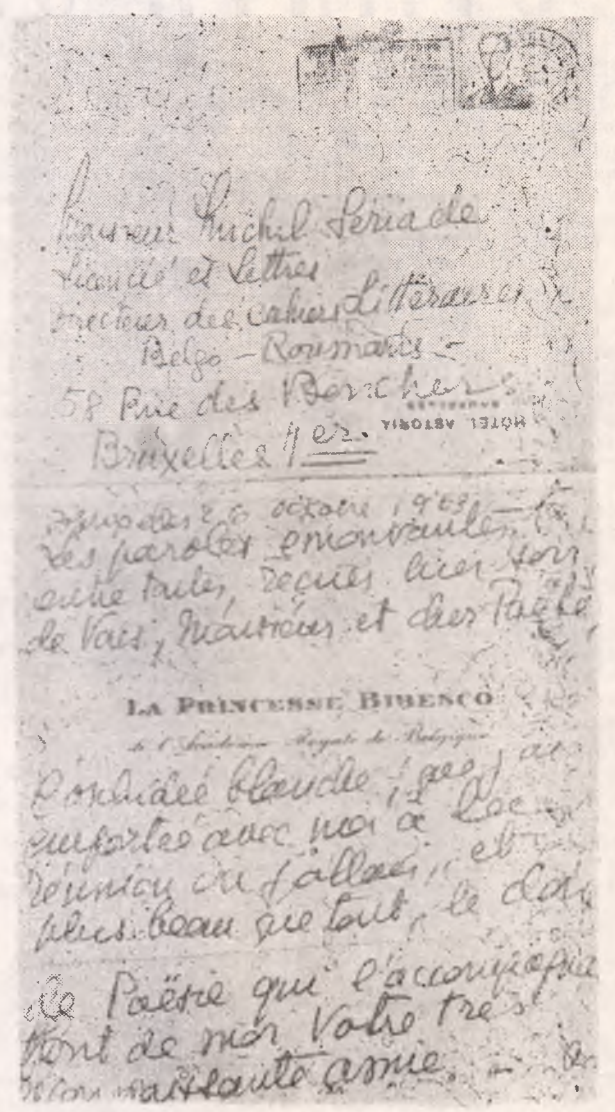 Monsieur Michel Seriade
Licencié et Lettres
Directeur des cahiers Littéraires
Belgo-Roumains -
58 Rue des Bouchers
HOTEL ASTORIA
Bruxelles 1er.
Bruxelles 2 octobre 1969
Les paroles émouvantes
entre toutes, reçues hier soir
de Vous, Monsieur et cher Poète,
LA PRINCESSE BIBESCO
de l'Académie Royale de Belgique
l'orchidée blanche, que j'ai
emportée avec moi à
réunion où j'allais, et
plus beau que tout, le don
de Poësie qui l'accompagne
font de moi Votre très
reconnaissante amie.